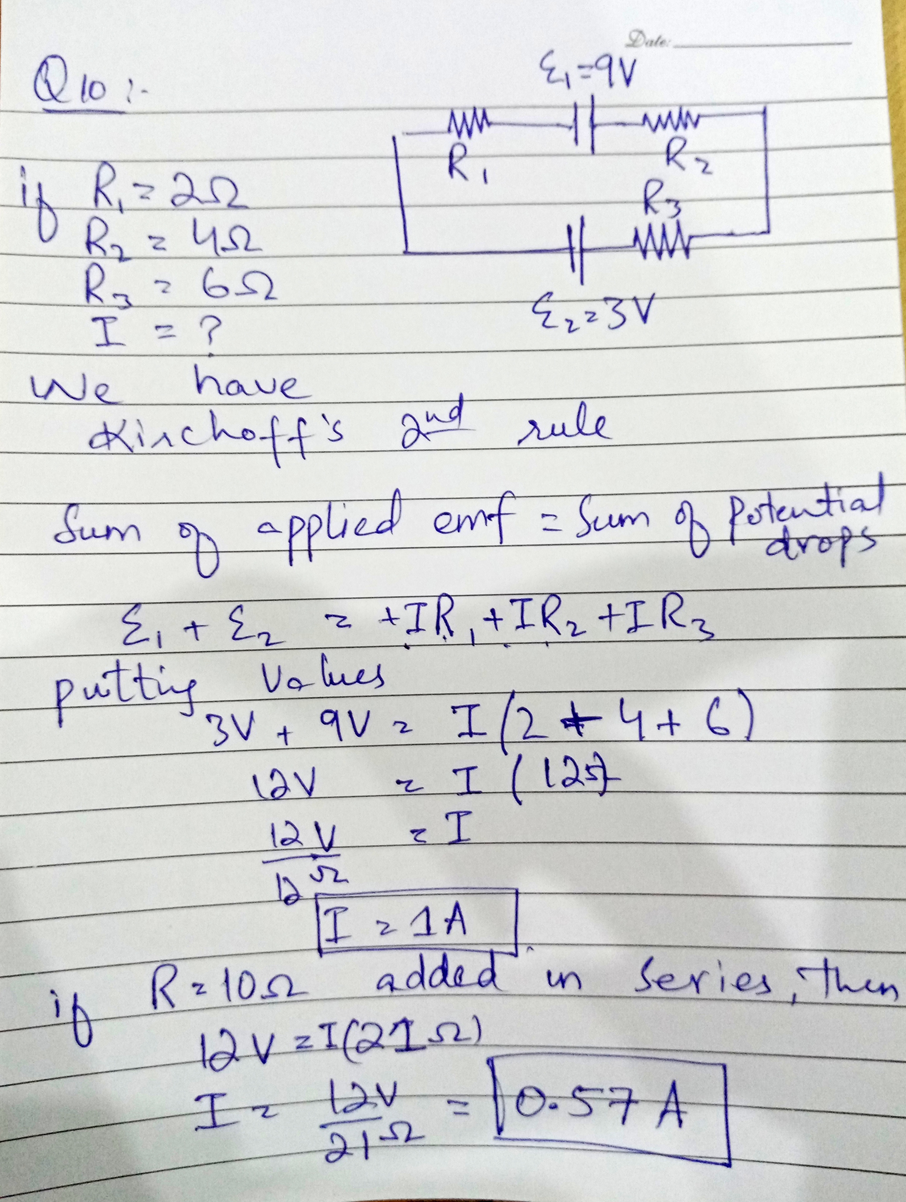 Date:
Q10:-
ε₁=9V
R₁
R₂
R₃
ε₂=3V
if R₁=2Ω
R₂=4Ω
R₃=6Ω
I=?
We have
Kirchoff's 2nd rule
Sum of applied emf = Sum of Potential drops
ε₁ + ε₂ = +IR₁ + IR₂ + IR₃
putting Values
3V + 9V = I(2+4+6)
12V = I(12Ω)
12V/12Ω = I
I = 1A
if R=10Ω added in Series, then
12V = I(21Ω)
I = 12V/21Ω = 0.57A